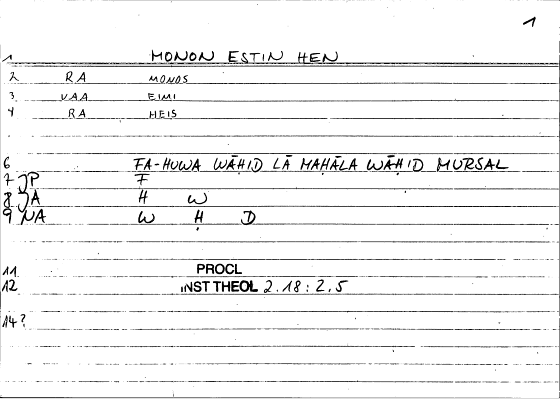 1
1 MONON ESTIN HEN
2 RA MONOS
3 VAA EIMI
4 RA HEIS
6 FA-HUWA WĀḤID LĀ MAḤĀLA WĀḤID MURSAL
7 JP F
8 JA H W
9 NA W Ḥ D
11 PROCL
12 INST THEOL 2.18:2.5
14?